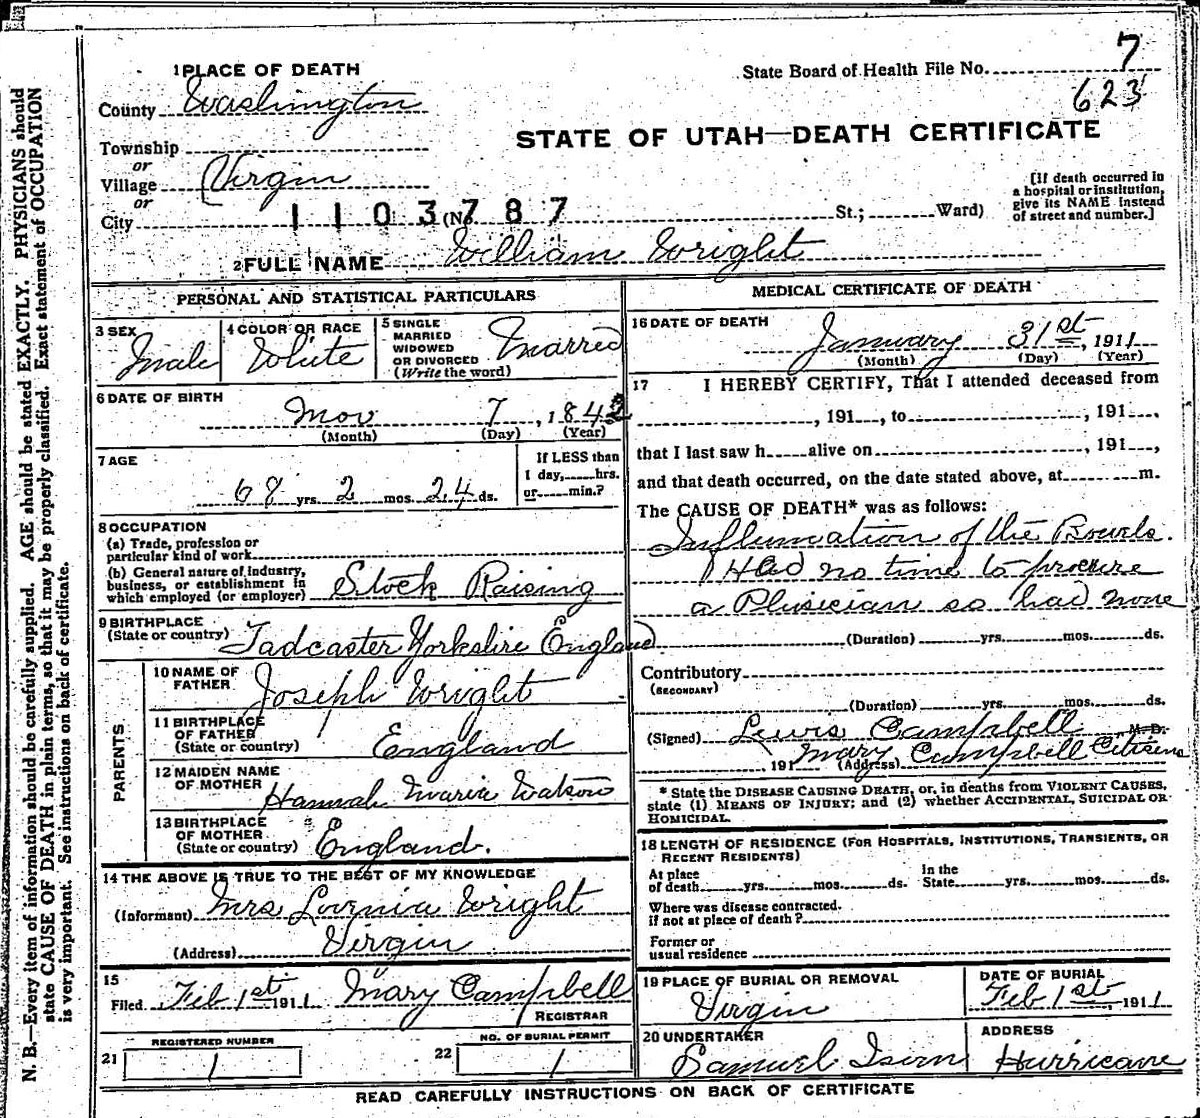 7
State Board of Health File No.
623
1 PLACE OF DEATH
County Washington
STATE OF UTAH—DEATH CERTIFICATE
Township
or
Village Virgin
or
City
1103787
(No. St.; Ward)
[If death occurred in
a hospital or institution,
give its NAME instead
of street and number.]
2 FULL NAME William Wright
PERSONAL AND STATISTICAL PARTICULARS
3 SEX
Male
4 COLOR OR RACE
White
5 SINGLE
MARRIED
WIDOWED
OR DIVORCED
(Write the word)
Married
6 DATE OF BIRTH
Nov 7, 1842
(Month) (Day) (Year)
7 AGE
68 yrs. 2 mos. 24 ds.
If LESS than
1 day, hrs.
or min.?
8 OCCUPATION
(a) Trade, profession or
particular kind of work
(b) General nature of industry,
business, or establishment in
which employed (or employer) Stock Raising
9 BIRTHPLACE
(State or country) Tadcaster Yorkshire England
PARENTS
10 NAME OF
FATHER Joseph Wright
11 BIRTHPLACE
OF FATHER
(State or country) England
12 MAIDEN NAME
OF MOTHER Hannah Maria Watson
13 BIRTHPLACE
OF MOTHER
(State or country) England.
14 THE ABOVE IS TRUE TO THE BEST OF MY KNOWLEDGE
(Informant) Mrs Lovinia Wright
(Address) Virgin
15
Filed Feb 1st 1911 Mary Campbell
REGISTRAR
21 REGISTERED NUMBER
1
22 NO. OF BURIAL PERMIT
1
MEDICAL CERTIFICATE OF DEATH
16 DATE OF DEATH
January 31st, 1911
(Month) (Day) (Year)
17 I HEREBY CERTIFY, That I attended deceased from
, 191 , to , 191 ,
that I last saw h alive on , 191 ,
and that death occurred, on the date stated above, at m.
The CAUSE OF DEATH* was as follows:
Influmation of the Bowels
Had no time to procure
a Phisician so had none
(Duration) yrs. mos. ds.
Contributory
(SECONDARY)
(Duration) yrs. mos. ds.
(Signed) Lewis Campbell M. D.
, 191 (Address) Mary Campbell Citisens
* State the DISEASE CAUSING DEATH, or, in deaths from VIOLENT CAUSES,
state (1) MEANS OF INJURY; and (2) whether ACCIDENTAL, SUICIDAL OR
HOMICIDAL.
18 LENGTH OF RESIDENCE (FOR HOSPITALS, INSTITUTIONS, TRANSIENTS, OR
RECENT RESIDENTS)
At place
of death yrs. mos. ds.
In the
State yrs. mos. ds.
Where was disease contracted.
if not at place of death?
Former or
usual residence
19 PLACE OF BURIAL OR REMOVAL
Virgin
DATE OF BURIAL
Feb 1st, 1911
20 UNDERTAKER
Samuel Isom
ADDRESS
Hurricane
READ CAREFULLY INSTRUCTIONS ON BACK OF CERTIFICATE
N. B.—Every item of information should be carefully supplied. AGE should be stated EXACTLY. PHYSICIANS should
state CAUSE OF DEATH in plain terms, so that it may be properly classified. Exact statement of OCCUPATION
is very important. See instructions on back of certificate.